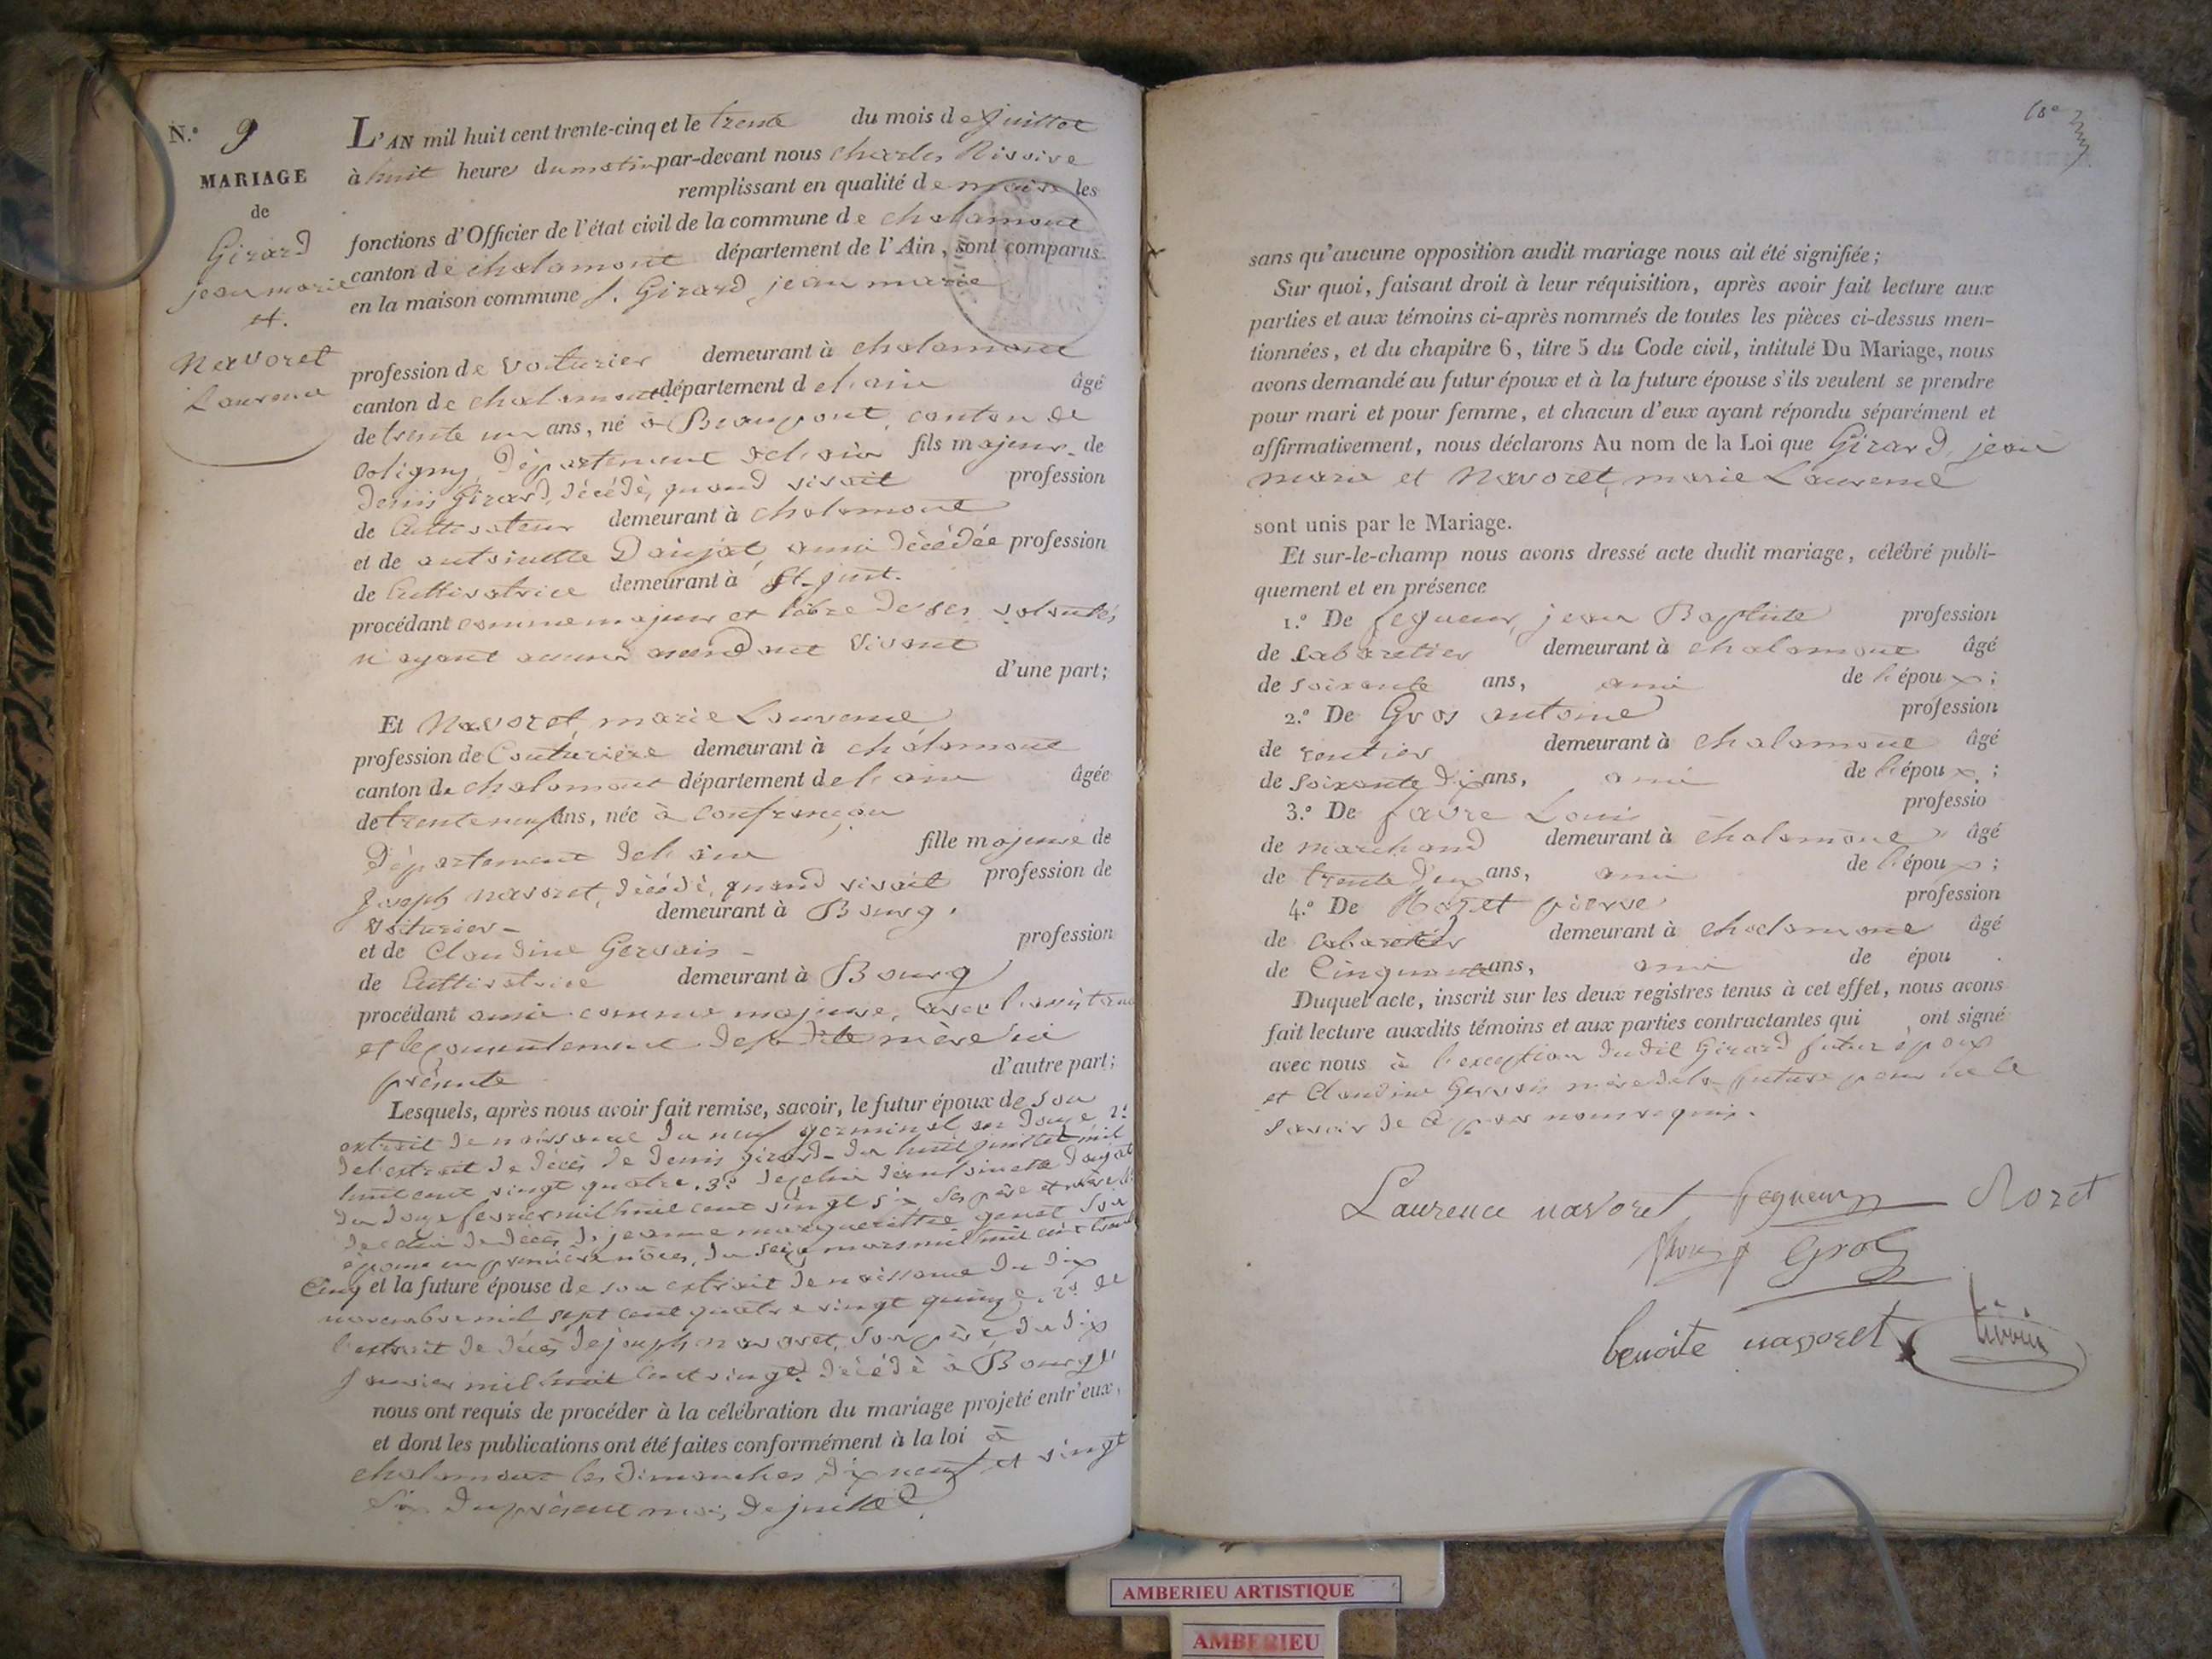 N.° 9
MARIAGE
de
Girard
jean marie
et.
Navoret
Laurence
L'AN mil huit cent trente-cinq et le trente du mois de juillet
à huit heures du matin par-devant nous Charles
remplissant en qualité de maire les
fonctions d'Officier de l'état civil de la commune de chalamont
canton de chalamont département de l'Ain, sont comparus
en la maison commune Girard jean marie
profession de voiturier demeurant à chalamont
canton de chalamont département de l'ain âgé
de trente un ans, né à Beaupont, canton de
Coligny, département de l'ain fils majeur de
Denis Girard, décédé, quand vivait profession
de Cultivateur demeurant à chalamont
et de antoinette Daujat, aussi décédée profession
de Cultivatrice demeurant à St. just.
procédant comme majeur et libre de ses volontés,
n'ayant aucun ascendant vivant
d'une part;
Et Navoret, marie Laurence
profession de Couturière demeurant à chalamont
canton de chalamont département de l'ain âgée
de trente neuf ans, née à confrançon
Département de l'ain fille majeure de
Joseph navoret, décédé, quand vivait profession de
voiturier demeurant à Bourg.
et de Claudine Gervais profession
de Cultivatrice demeurant à Bourg
procédant aussi comme majeure, avec l'assistance
et le consentement de sa dite mère ici
présente d'autre part;
Lesquels, après nous avoir fait remise, savoir, le futur époux de son
extrait de naissance du neuf germinal an douze, 2.°
de l'extrait de décès de Denis girard du huit juillet mil
huit cent vingt quatre, 3.° de celui d'antoinette Daujat
du douze fevrier mil huit cent vingt six ses père et mère
de celui de décès de jeanne margueritte genet son
épouse en première nôces, du seize mars mil huit cent trente
Cinq et la future épouse de son extrait de naissance du dix
novembre mil sept cent quatre vingt quinze, 2.° de
l'extrait de décès de joseph navoret, son père, du dix
Janvier mil huit cent vingt décédé à Bourg
nous ont requis de procéder à la célébration du mariage projeté entr'eux,
et dont les publications ont été faites conformément à la loi à
chalamont les dimanches dix neuf et vingt
six du présent mois de juillet
sans qu'aucune opposition audit mariage nous ait été signifiée;
Sur quoi, faisant droit à leur réquisition, après avoir fait lecture aux
parties et aux témoins ci-après nommés de toutes les pièces ci-dessus men-
tionnées, et du chapitre 6, titre 5 du Code civil, intitulé Du Mariage, nous
avons demandé au futur époux et à la future épouse s'ils veulent se prendre
pour mari et pour femme, et chacun d'eux ayant répondu séparément et
affirmativement, nous déclarons Au nom de la Loi que Girard, jean
marie et Navoret, marie Laurence
sont unis par le Mariage.
Et sur-le-champ nous avons dressé acte dudit mariage, célébré publi-
quement et en présence
1.° De fegueur, jean Baptiste profession
de Cabaretier demeurant à chalamont âgé
de soixante ans, ami de l'époux;
2.° De Gros antoine profession
de rentier demeurant à chalamont âgé
de soixante dix ans, ami de l'époux;
3.° De favre Louis professio
de marchand demeurant à chalamont âgé
de trente deux ans, ami de l'époux;
4.° De Rozet pierre profession
de Cabaretier demeurant à chalamont âgé
de Cinquante ans, ami de épou
Duquel acte, inscrit sur les deux registres tenus à cet effet, nous avons
fait lecture auxdits témoins et aux parties contractantes qui ont signé
avec nous à l'exception dudit Girard futur époux
et Claudine Gervais mère de la future pour ne le
savoir de ce par nous requis.
Laurence navoret fegueur Rozet
favre Gros
benoite navoret
AMBERIEU ARTISTIQUE
AMBERIEU